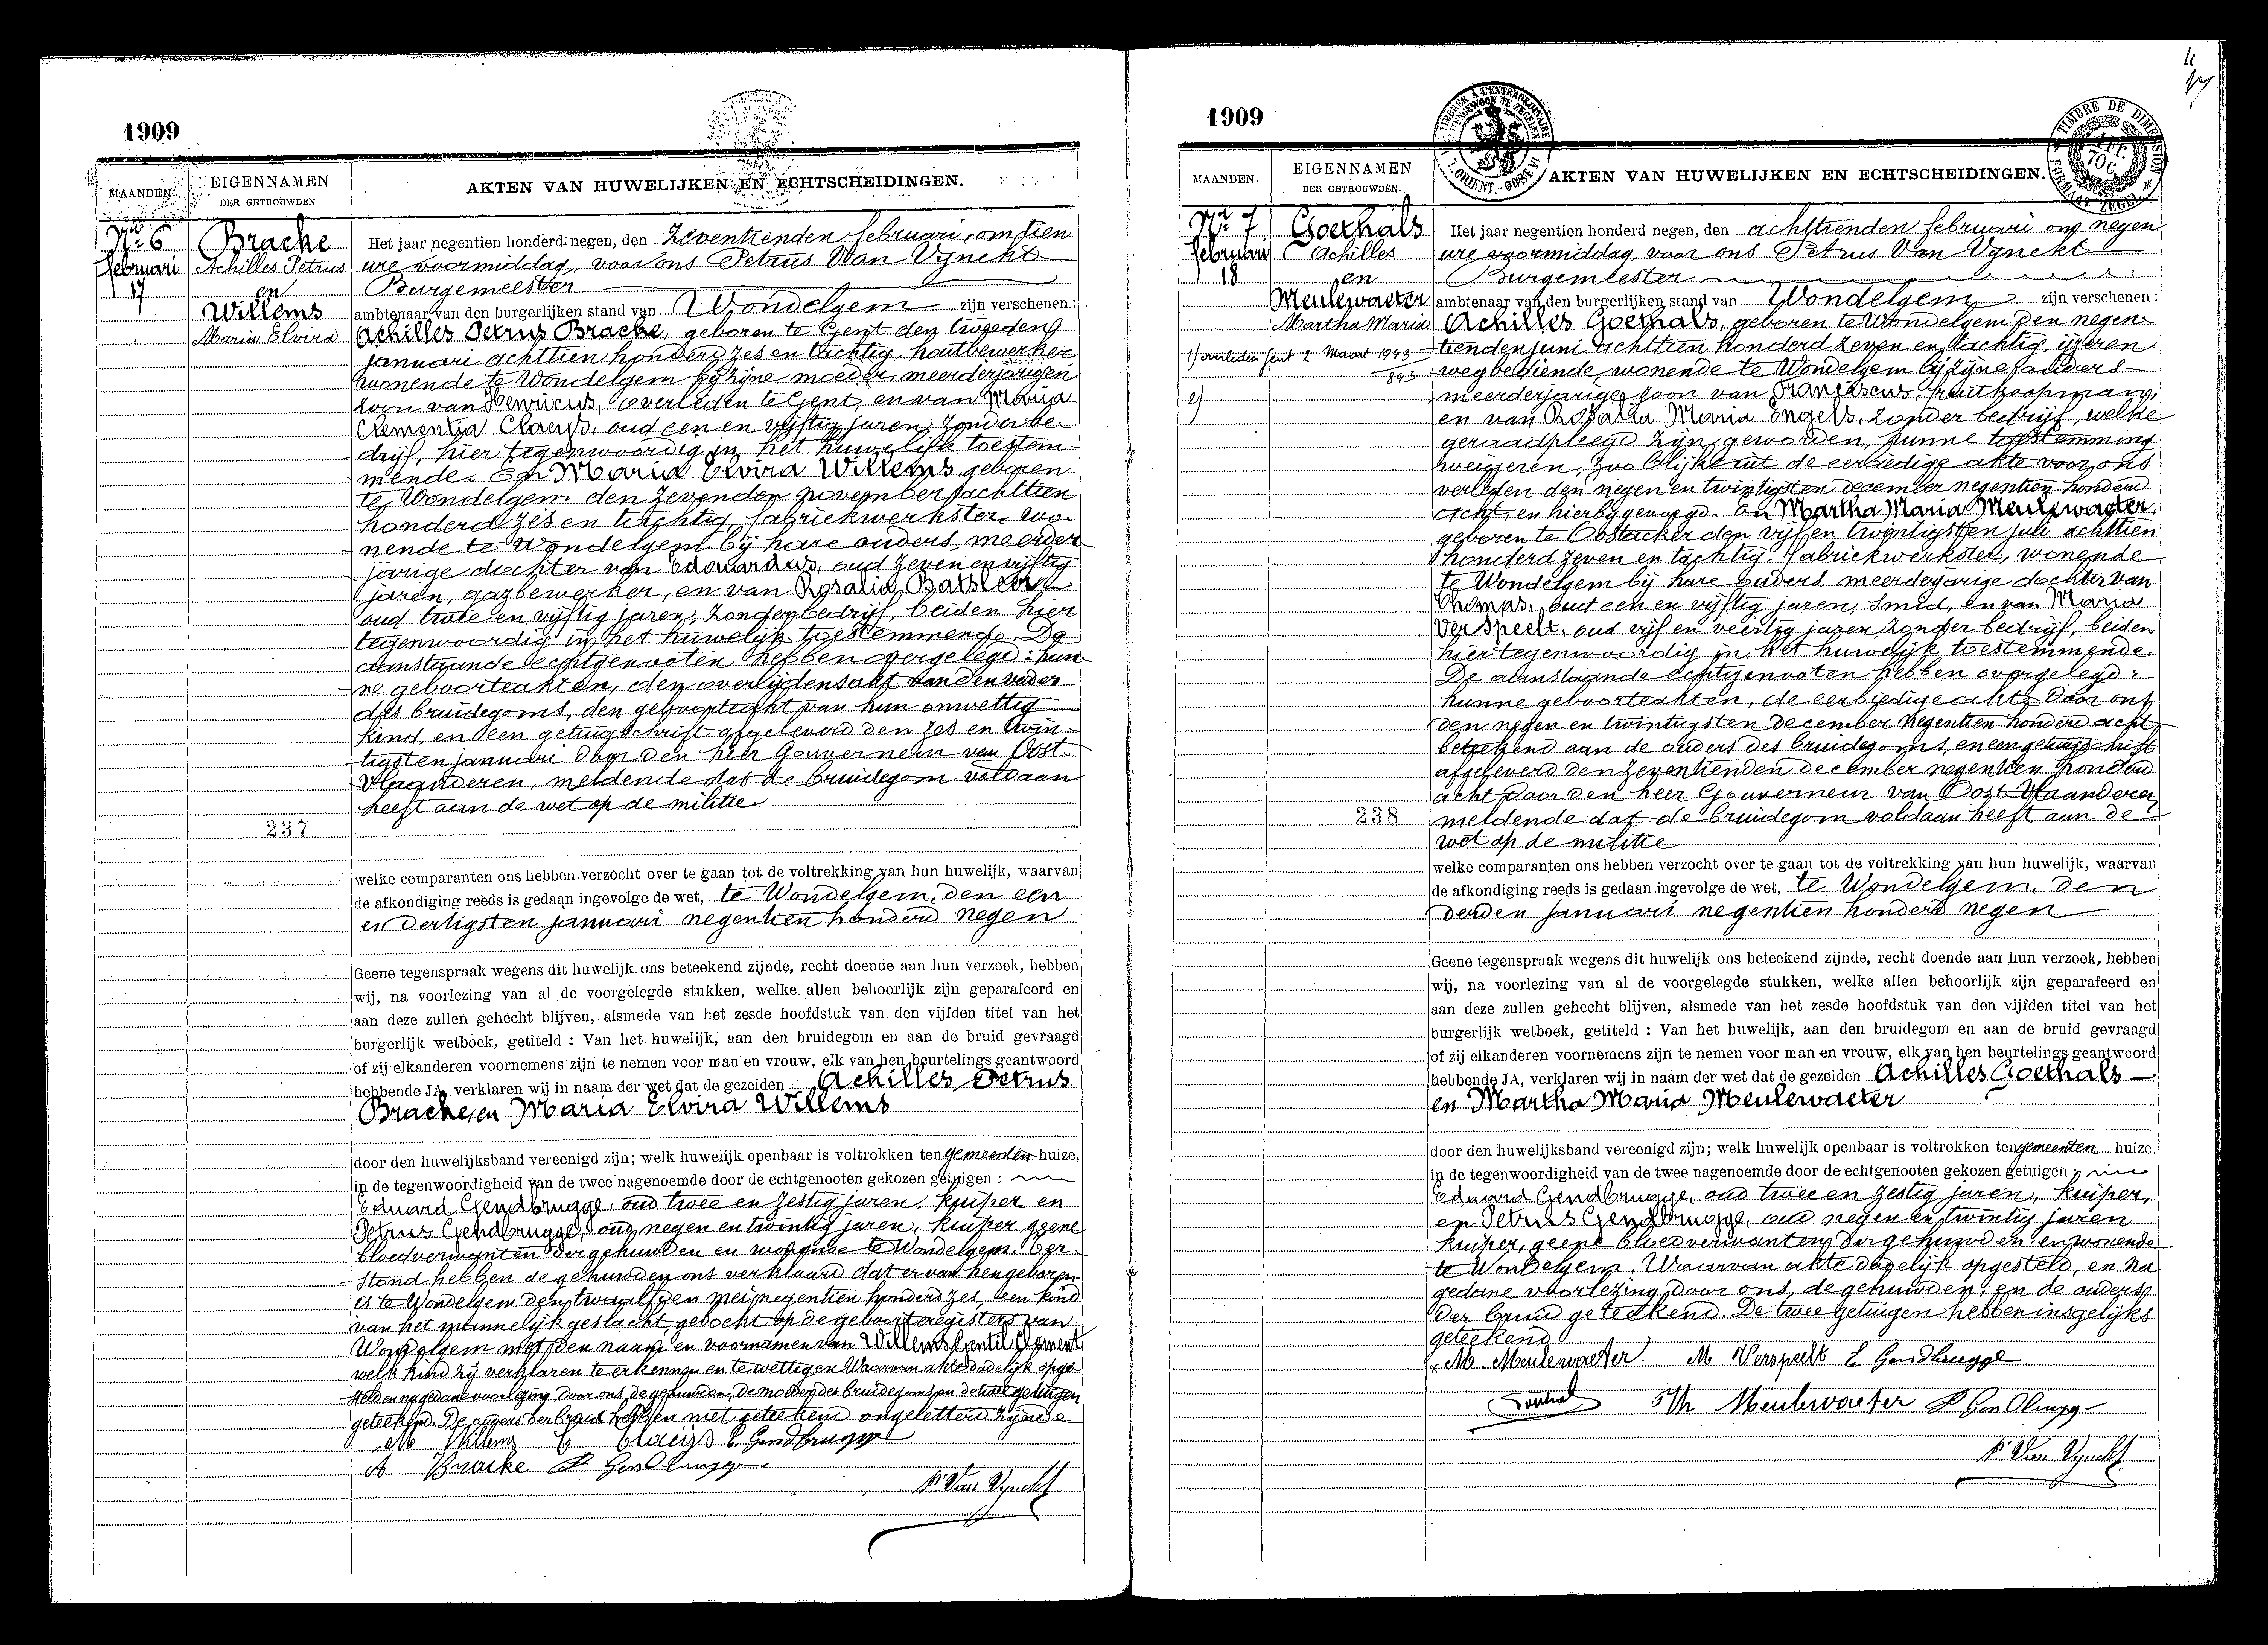 1909
MAANDEN.
EIGENNAMEN
DER GETROUWDEN
AKTEN VAN HUWELIJKEN EN ECHTSCHEIDINGEN.
Nr. 6
februari
17
Brache
Achilles Petrus
en
Willems
Maria Elvira
Het jaar negentien honderd negen, den zeventienden februari, om tien
ure voormiddag, voor ons Petrus Van Vynckt
Burgemeester
ambtenaar van den burgerlijken stand van Wondelgem zijn verschenen :
Achilles Petrus Brache, geboren te Gent den tweeden
januari achttien honderd zes en tachtig, houtbewerker
wonende te Wondelgem bij zijne moeder, meerderjarigen
zoon van Henricus, overleden te Gent, en van Maria
Clementia Claeys, oud een en vijftig jaren, zonder be-
drijf, hier tegenwoordig in het huwelijk toestem-
mende. En Maria Elvira Willems, geboren
te Wondelgem den zevenden november achttien
honderd zes en tachtig, fabriekwerkster, wo-
nende te Wondelgem bij hare ouders, meerder-
jarige dochter van Edouardus, oud zeven en vijftig
jaren, gazbewerker, en van Rosalia
oud twee en vijftig jaren, zonder bedrijf, beiden hier
tegenwoordig in het huwelijk toestemmende. De
aanstaande echtgenooten hebben overgelegd : hun-
ne geboorteakten, den overlijdensakt van den vader
des bruidegoms, den geboorteakt van hun onwettig
kind, en een getuigschrift afgeleverd den zes en twin-
tigsten januari door den heer Gouverneur van Oost-
Vlaanderen, meldende dat de bruidegom voldaan
heeft aan de wet op de militie
237
welke comparanten ons hebben verzocht over te gaan tot de voltrekking van hun huwelijk, waarvan
de afkondiging reeds is gedaan ingevolge de wet, te Wondelgem, den een
en dertigsten januari negentien honderd negen
Geene tegenspraak wegens dit huwelijk ons beteekend zijnde, recht doende aan hun verzoek, hebben
wij, na voorlezing van al de voorgelegde stukken, welke allen behoorlijk zijn geparafeerd en
aan deze zullen gehecht blijven, alsmede van het zesde hoofdstuk van den vijfden titel van het
burgerlijk wetboek, getiteld : Van het huwelijk, aan den bruidegom en aan de bruid gevraagd
of zij elkanderen voornemens zijn te nemen voor man en vrouw, elk van hen beurtelings geantwoord
hebbende JA, verklaren wij in naam der wet dat de gezeiden Achilles Petrus
Brache, en Maria Elvira Willems
door den huwelijksband vereenigd zijn; welk huwelijk openbaar is voltrokken ten gemeenten huize,
in de tegenwoordigheid van de twee nagenoemde door de echtgenooten gekozen getuigen :
Eduard Gendbrugge, oud twee en zestig jaren, kuiper en
Petrus Gendbrugge, oud negen en twintig jaren, kuiper, geene
bloedverwanten der gehuwden en wonende te Wondelgem. Ter-
stond hebben de gehuwden ons verklaard dat er van hen geboren
is te Wondelgem den twaalfden mei negentien honderd zes, een kind
van het mannelijk geslacht, geboekt op de geboorteregisters van
Wondelgem met den naam en voornamen van Willems Gentil Clement
welk kind zij verklaren te erkennen en te wettigen. Waarvan akte dadelijk opge-
steld en na gedane voorlezing door ons, de gehuwden, de moeder des bruidegoms en de twee getuigen
geteekend. De ouders der bruid hebben niet geteekend ongeletterd zijnde
M Willems C Claeys E. Gendbrugge
A Bracke P Gendbrugge
P. Van Vynckt
1909
MAANDEN.
EIGENNAMEN
DER GETROUWDEN.
AKTEN VAN HUWELIJKEN EN ECHTSCHEIDINGEN.
TIMBRE DE DIMENSION
Nr. 7
februari
18
Goethals
Achilles
en
Meulewaeter
Martha Maria
1) overleden Gent 2 Maart 1943
843
2)
Het jaar negentien honderd negen, den achttienden februari om negen
ure voormiddag, voor ons Petrus Van Vynckt
Burgemeester
ambtenaar van den burgerlijken stand van Wondelgem zijn verschenen :
Achilles Goethals, geboren te Wondelgem den negen-
tienden juni achttien honderd zeven en tachtig, ijzeren
wegbediende, wonende te Wondelgem bij zijne ouders
meerderjarige zoon van Franciscus, houtkoopman,
en van Rosalia Maria Engels, zonder bedrijf, welke
geraadpleegd zijn geworden, hunne toestemming
weigeren, zoo blijkt uit de eerbiedige akte voor ons
verleden den negen en twintigsten december negentien honderd
acht, en hierbij gevoegd. En Martha Maria Meulewaeter,
geboren te Oostacker den vijf en twintigsten juli achttien
honderd zeven en tachtig, fabriekwerkster, wonende
te Wondelgem bij hare ouders, meerderjarige dochter van
Thomas, oud een en vijftig jaren, smid, en van Maria
Verspeelt, oud vijf en veertig jaren, zonder bedrijf, beiden
hier tegenwoordig in het huwelijk toestemmende.
De aanstaande echtgenooten hebben overgelegd :
hunne geboorteakten, de eerbiedige akte door ons
den negen en twintigsten december negentien honderd acht
beteekend aan de ouders des bruidegoms, en een getuigschrift
afgeleverd den zeventienden december negentien honderd
acht door den heer Gouverneur van Oost-Vlaanderen
238
meldende dat de bruidegom voldaan heeft aan de
wet op de militie
welke comparanten ons hebben verzocht over te gaan tot de voltrekking van hun huwelijk, waarvan
de afkondiging reeds is gedaan ingevolge de wet, te Wondelgem, den
derden januari negentien honderd negen
Geene tegenspraak wegens dit huwelijk ons beteekend zijnde, recht doende aan hun verzoek, hebben
wij, na voorlezing van al de voorgelegde stukken, welke allen behoorlijk zijn geparafeerd en
aan deze zullen gehecht blijven, alsmede van het zesde hoofdstuk van den vijfden titel van het
burgerlijk wetboek, getiteld : Van het huwelijk, aan den bruidegom en aan de bruid gevraagd
of zij elkanderen voornemens zijn te nemen voor man en vrouw, elk van hen beurtelings geantwoord
hebbende JA, verklaren wij in naam der wet dat de gezeiden Achilles Goethals
en Martha Maria Meulewaeter
door den huwelijksband vereenigd zijn; welk huwelijk openbaar is voltrokken ten gemeenten huize.
in de tegenwoordigheid van de twee nagenoemde door de echtgenooten gekozen getuigen
Eduard Gendbrugge, oud twee en zestig jaren, kuiper,
en Petrus Gendbrugge, oud negen en twintig jaren
kuiper, geene bloedverwanten der gehuwden en wonende
te Wondelgem. Waarvan akte dadelijk opgesteld, en na
gedane voorlezing door ons, de gehuwden, en de ouders
der bruid geteekend. De twee getuigen hebben insgelijks
geteekend
M. Meulewaeter M Verspeelt E Gendbrugge
Th Meulewaeter P Gendbrugge
P. Van Vynckt